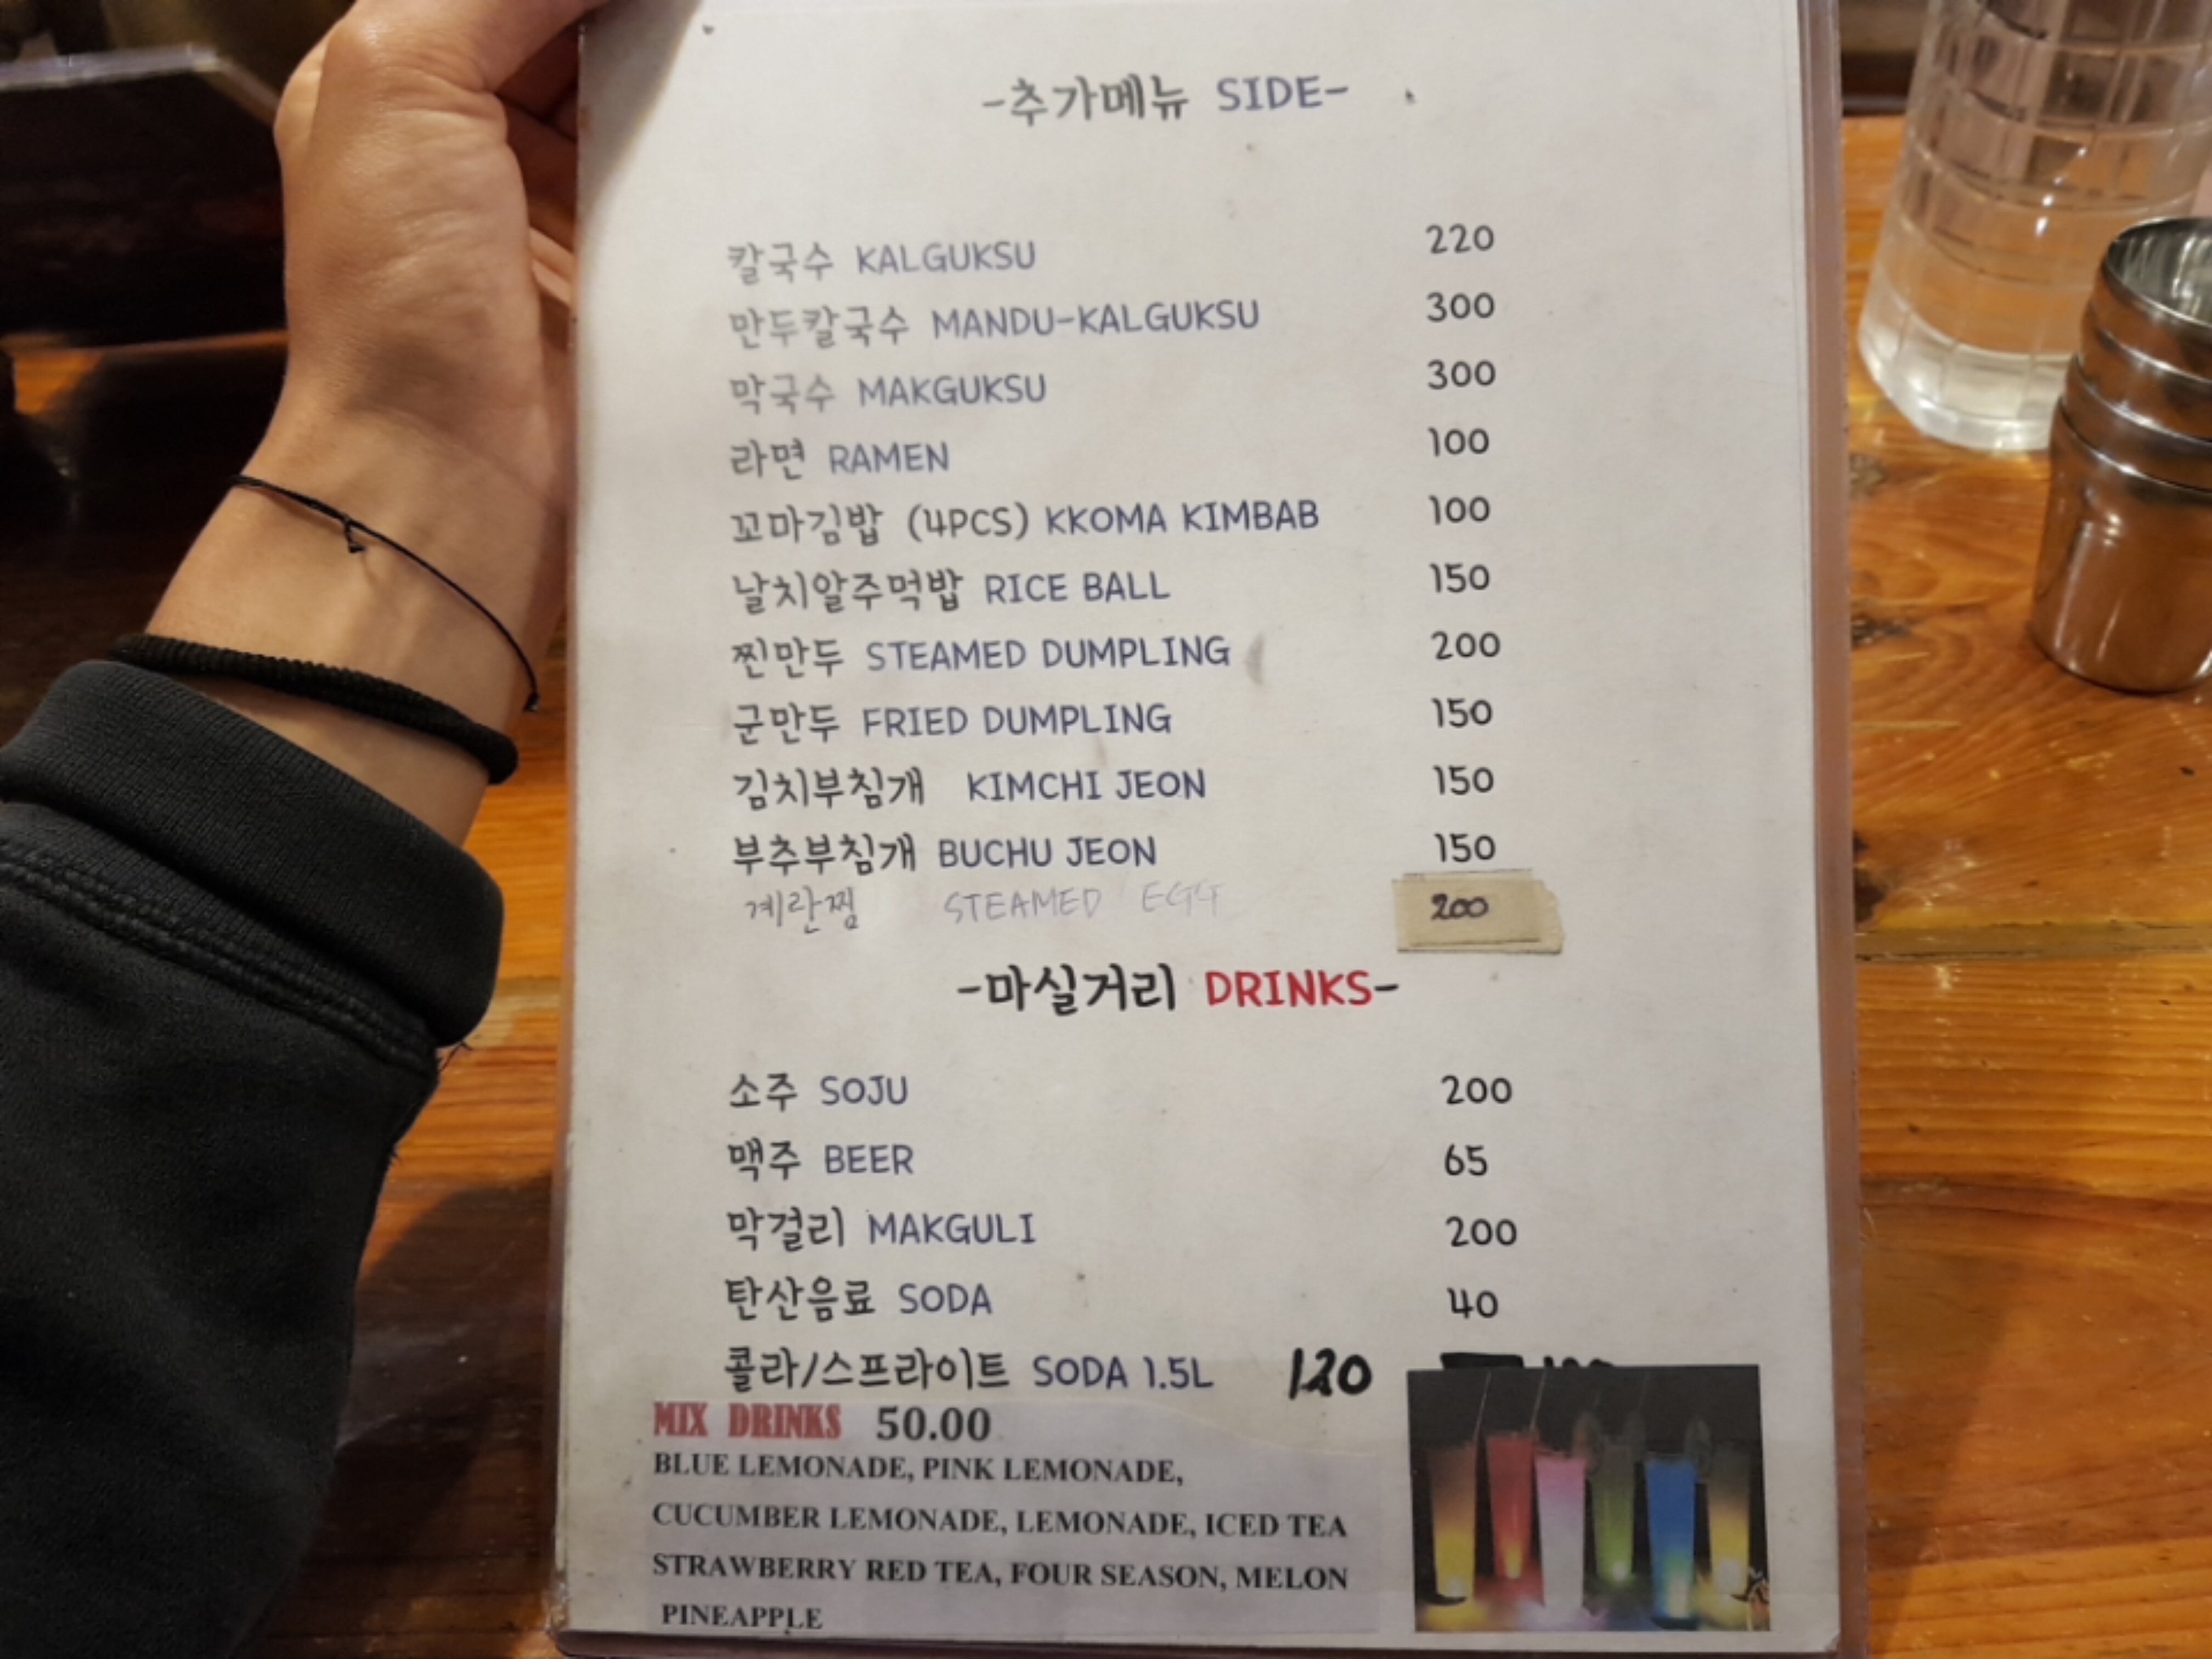 -추가메뉴 SIDE-
칼국수 KALGUKSU 220
만두칼국수 MANDU-KALGUKSU 300
막국수 MAKGUKSU 300
라면 RAMEN 100
꼬마김밥 (4PCS) KKOMA KIMBAB 100
날치알주먹밥 RICE BALL 150
찐만두 STEAMED DUMPLING 200
군만두 FRIED DUMPLING 150
김치부침개 KIMCHI JEON 150
부추부침개 BUCHU JEON 150
계란찜 STEAMED EGG 200
-마실거리 DRINKS-
소주 SOJU 200
맥주 BEER 65
막걸리 MAKGULI 200
탄산음료 SODA 40
콜라/스프라이트 SODA 1.5L 120
MIX DRINKS 50.00
BLUE LEMONADE, PINK LEMONADE,
CUCUMBER LEMONADE, LEMONADE, ICED TEA
STRAWBERRY RED TEA, FOUR SEASON, MELON
PINEAPPLE